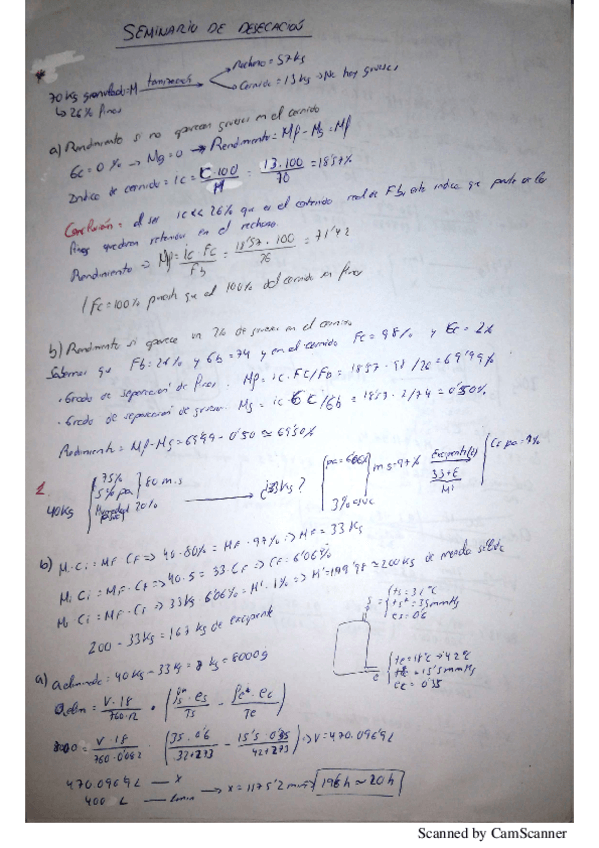 SEMINARIO DE DESECACIÓN
70 kg granulado = M tamización Rechazo = 57 kg
Cernido = 13 kg → No hay gruesos
↳ 26% finos
a) Rendimiento si no aparecen gruesos en el cernido
Gc = 0% → Mg = 0 → Rendimiento = Mf - Mg = Mf
Indice de cernido = ic = C·100 / M = 13·100 / 70 = 18'57%
Conclusión = al ser ic << 26% que es el contenido real de Fb, esto indica que parte de los
finos quedaron retenidos en el rechazo.
Rendimiento → Mf = ic·Fc / Fb = 18'57·100 / 26 = 71'42
Fc = 100% puesto que el 100% del cernido son finos
b) Rendimiento si aparece un 2% de gruesos en el cernido
Sabemos que Fb = 26% y Gb = 74 y en el cernido Fc = 98% y Gc = 2%
· Grado de separación de finos. Mf = ic·Fc/Fb = 18'57·98/26 = 69'99%
· Grado de separación de gruesos. Mg = ic Gc/Gb = 18'57·2/74 = 0'50%
Rendimiento = Mf - Mg = 69'99 - 0'50 ≈ 69'50%
2.
40 kg
75%
5% pa
Humedad 20%
80 m.s
→ ¿33 kg?
m s = 97%
3% agua
Excipiente (E)
33+E
M'
Cs pa = 1%
b) Mi·Ci = Mf·Cf ⇒ 40·80% = Mf·97% ⇒ Mf = 33 kg
Mi Ci = Mf·Cf ⇒ 40·5 = 33·Cf ⇒ Cf = 6'06%
⇒ 33 kg 6'06% = M'·1% ⇒ M' = 199'98 ≈ 200 kg de mezcla sólida
200 - 33 kg = 167 kg de excipiente
s = ts = 32°C
ts* = 35 mmHg
es = 0'6
e te = 18°C → 42°C
te* = 15'5 mmHg
ee = 0'35
a) = 40 kg - 33 kg = 8 kg = 8000 g
= V·18 / 760·R · (Ps*·es / Ts - Pe*·ee / Te)
8000 = V·18 / 760·0'082 · (35·0'6 / 32+273 - 15'5·0'35 / 42+273) ⇒ V = 470.0969 L
470.0969 L — x
400 L — 1 min → x = 1175'2 min ⇒ 19'6 h ≈ 20 h
Scanned by CamScanner